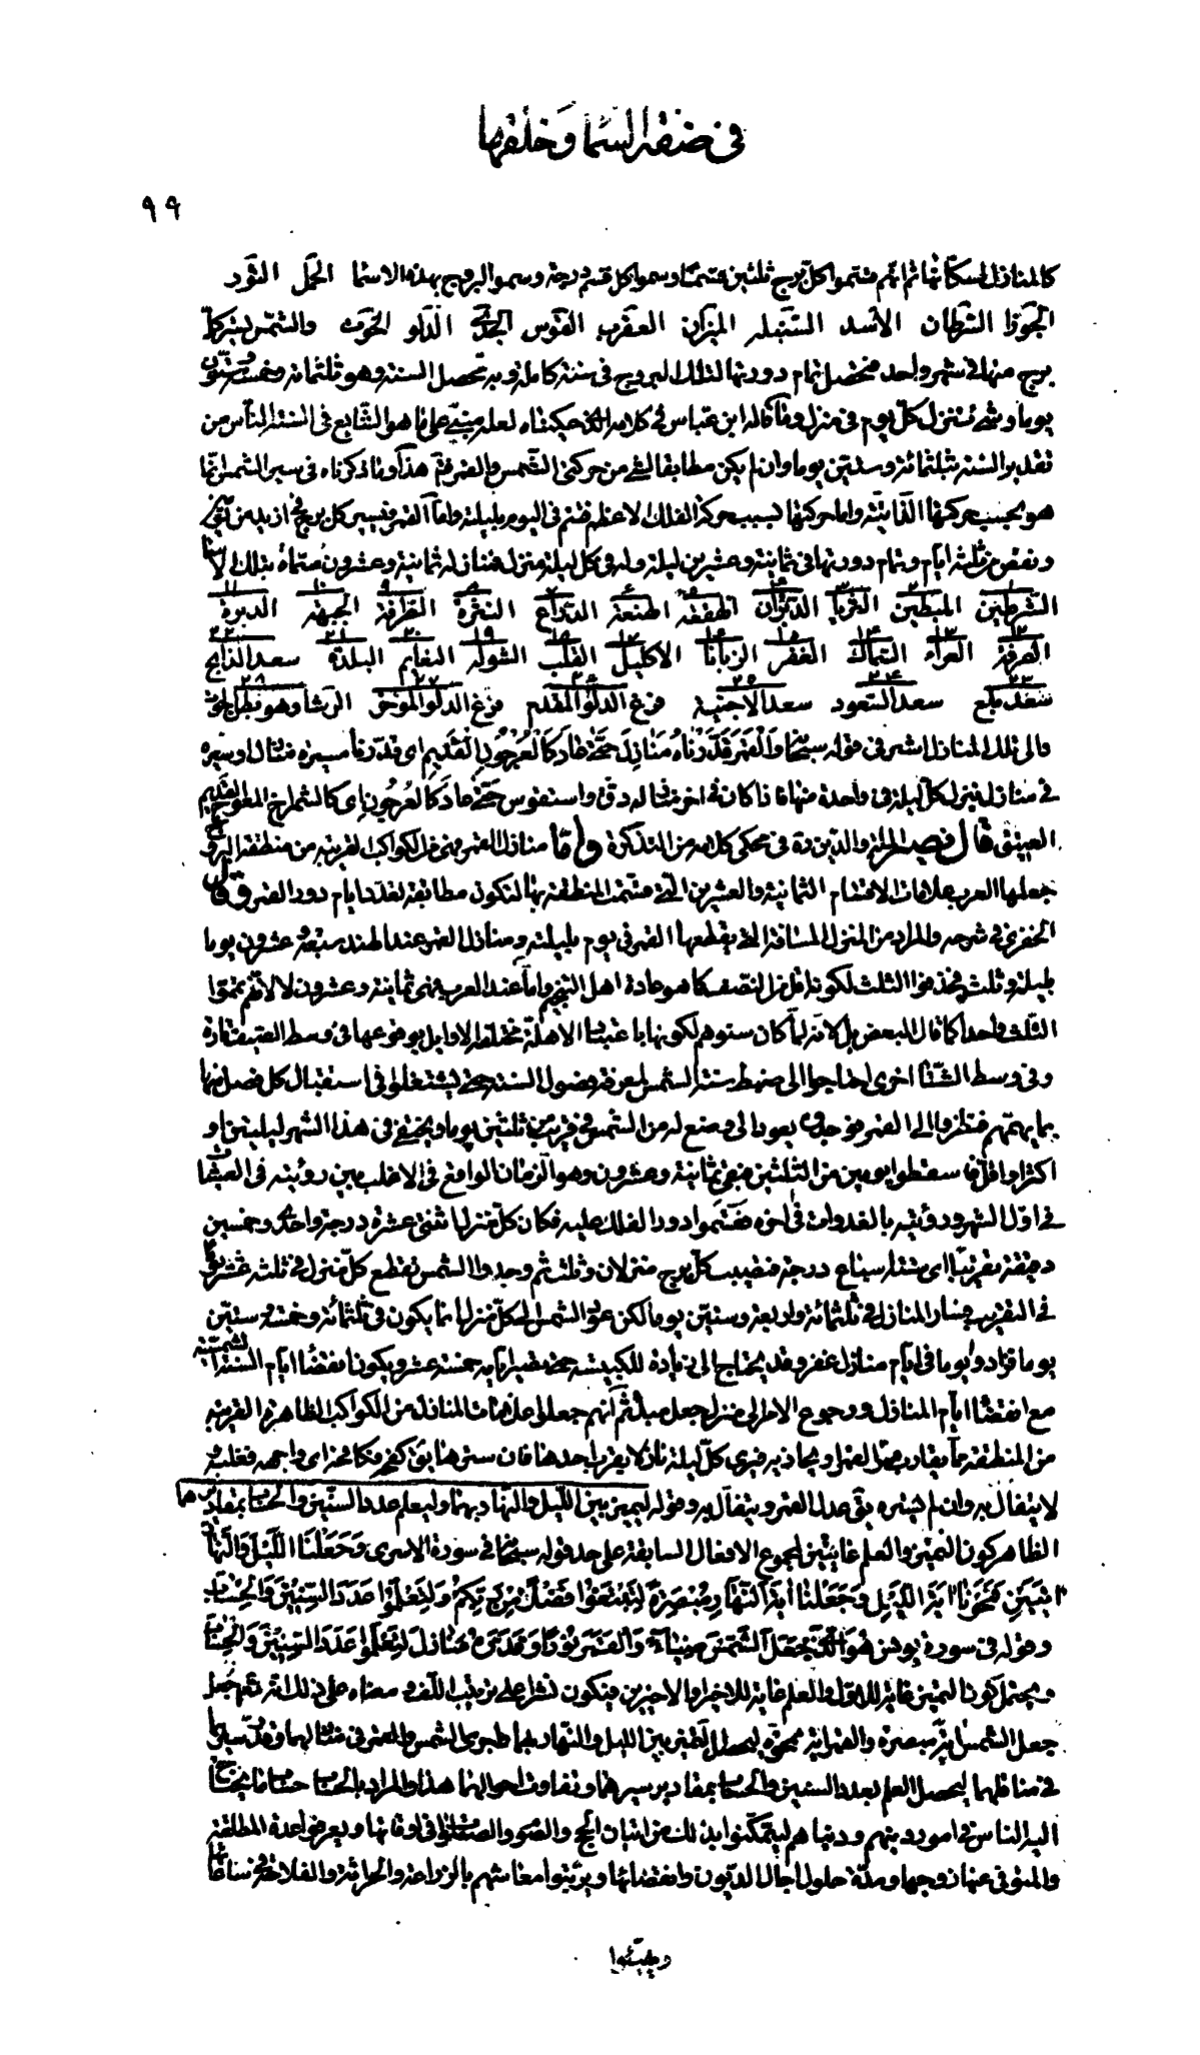 في صفة السما وخلقها
٩٩
كالمنازل لسكانها ثم انهم قسموا كل برج ثلثين قسما وسموا كل قسم درجة وسموا البروج بهذه الاسما الحمل الثور
الجوزا السرطان الأسد السنبله الميزان العقرب القوس الجدي الدلو الحوت والشمس يسير كل
برج منها في شهر واحد فتحصل تمام دورتها لتلك البروج في سنة كاملة وبه تحصل السنة وهو ثلثمائة وخمسة وستون
يوما وشئ فتنزل كل يوم في منزل وما قاله ابن عباس في كلامه الذي حكيناه لعله مبني على ما هو الشايع في السنة الناس من
تقدير السنة بثلثمائة وستين يوما وان لم يكن مطابقا لشئ من حركتي الشمس والقمر ثم هذا وما ذكرناه في سير الشمس انما
هو بحسب حركتها الذاتية واما حركتها بسبب حركة الفلك الاعظم فتتم في اليوم بليلته واما القمر فيسير كل برج في ازيد من يومين
ونقص من ثلثة ايام وتمام دورتها في ثمانية وعشرين ليلة وله في كل ليلة منزل فمنازله ثمانية وعشرون مسماة بتلك الاسما
الشرطين البطين الثريا الدبران الهقعة الهنعة الذراع النثرة الطرفة الجبهة الدبرة
الصرفة العواء السماك الغفر الزبانا الاكليل القلب الشولة النعايم البلدة سعد الذابح
سعد بلع سعد السعود سعد الاخبية فرغ الدلو المقدم فرغ الدلو الموخر الرشا وهو بطن الحوت
والى تلك المنازل اشير في قوله سبحانه وَالْقَمَرَ قَدَّرْنَاهُ مَنَازِلَ حَتّى عَادَ كَالْعُرْجُونِ الْقَدِيمِ اى قدرنا مسيره منازل او سيره
في منازل فينزل كل ليلة في واحدة منها فاذا كان في اخر منازله دق واستقوس حتى عاد كالعرجون اى كالشمراخ المعوج القديم
العتيق قال نصير الملة والدين ره في محكى كلامه من التذكرة واما منازل القمر فهي من الكواكب القريبة من منطقة البروج
جعلها العرب علامات الاقسام الثمانية والعشرين التي قسمت المنطقة بها لتكون مطابقة لعدد ايام دور القمر وقال
الخفري في شرحه والمراد من المنزل المسافة التي يقطعها القمر في يوم بليلته ومنازل القمر عند الهند سبعة وعشرون يوما
بليلة وثلث فحذفوا الثلث لكونه اقل من النصف كما هو عادة اهل التنجيم واما عند العرب فهى ثمانية وعشرون لا لانهم تمموا
الثلث واحدا كما قال البعض بل لانه لما كان سنوهم لكونها باعتبار الاهلة مختلفة الاوايل بوقوعها في وسط الصيف تارة
وفي وسط الشتا اخرى احتاجوا الى ضبط سنة الشمس لمعرفة فصول السنة حتى يشتغلوا في استقبال كل فصل منها
بما يهمهم فنظروا الى القمر فوجدوه يعود الى وضع له من الشمس في قريب من ثلثين يوما ويختفي في هذا الشهر ليلتين او
اكثر او اقل فاسقطوا يومين من الثلثين فبقى ثمانية وعشرون وهو الزمان الواقع في الاغلب بين رؤيته في العشيات
في اول الشهر ورؤيته بالغدوات في اخره فقسموا دور الفلك عليه فكان كل منزل اثنتي عشرة درجة واحدى وخمسين
دقيقة تقريبا اى ستة اسباع درجة فنصيب كل برج منزلان وثلث ثم وجدوا الشمس تقطع كل منزل في ثلثة عشر يوما
في التقريب فصار المنازل في ثلثمائة واربعة وستين يوما لكن عود الشمس الى كل منزل انما يكون في ثلثمائة وخمسة وستين
يوما فزادوا يوما في ايام منازل غفر وقد يحتاج الى زيادة للكبيسة حتى تصير ايامه خمسة عشر ويكون انقضاء ايام السنة الشمسية
مع انقضاء ايام المنازل ورجوع الامر الى منزل جعل مبدأ ثم انهم جعلوا علامات المنازل من الكواكب الظاهرة القريبة
من المنطقة مما يقارب ممر القمر او يحاذيه فيرى كل ليلة نازلا بقرب احدها فان سترها يق كفحه فكافحه اى واجهه فغلبه
لا يتفال به وان لم يستره يق عدل القمر ويتفال به وقوله ليميز بين الليل والنهار بهما وليعلم عدد السنين والحساب بمقاديرهما
الظاهر كون التميز والعلم غايتين لمجموع الافعال السابقة على حد قوله سبحانه في سورة الاسرى وَجَعَلْنَا اللَّيْلَ وَالنَّهَارَ
ايَتَيْنِ فَمَحَوْنَا ايَةَ اللَّيْلِ وَجَعَلْنَا ايَةَ النَّهَارِ مُبْصِرَةً لِتَبْتَغُوا فَضْلًا مِنْ رَبِّكُمْ وَلِتَعْلَمُوا عَدَدَ السِّنِينَ وَالْحِسَابَ
وقوله في سورة يونس هُوَ الَّذِي جَعَلَ الشَّمْسَ ضِيَاءً وَالْقَمَرَ نُورًا وَقَدَّرَهُ مَنَازِلَ لِتَعْلَمُوا عَدَدَ السِّنِينَ وَالْحِسَابَ
ويحتمل كون التميز غاية للاول والعلم غاية للاخر او الاخيرين فيكون نشرا على ترتيب اللف ومعناه على ذلك انه تعالى جعل
جعل الشمس اية مبصرة والقمر اية ممحوة ليحصل التميز بين الليل والنهار بهما واجرى الشمس والقمر في منازلهما وقدر سيرهما
في منازلهما ليحصل العلم بعدد السنين والحساب بمقادير سيرهما وتفاوت احوالهما هذا والمراد بالحساب حساب ما يحتاج
اليه الناس في امور دينهم ودنياهم ليتمكنوا بذلك من اتيان الحج والصوم والصلوة في اوقاتها ويعرفوا عدة المطلقة
والمتوفى عنها زوجها ومدة حلول اجال الديون وانقضائها ويرتبوا معاشهم بالزراعة والحراثة والفلاحة في ساعاتها
ويهيئوا